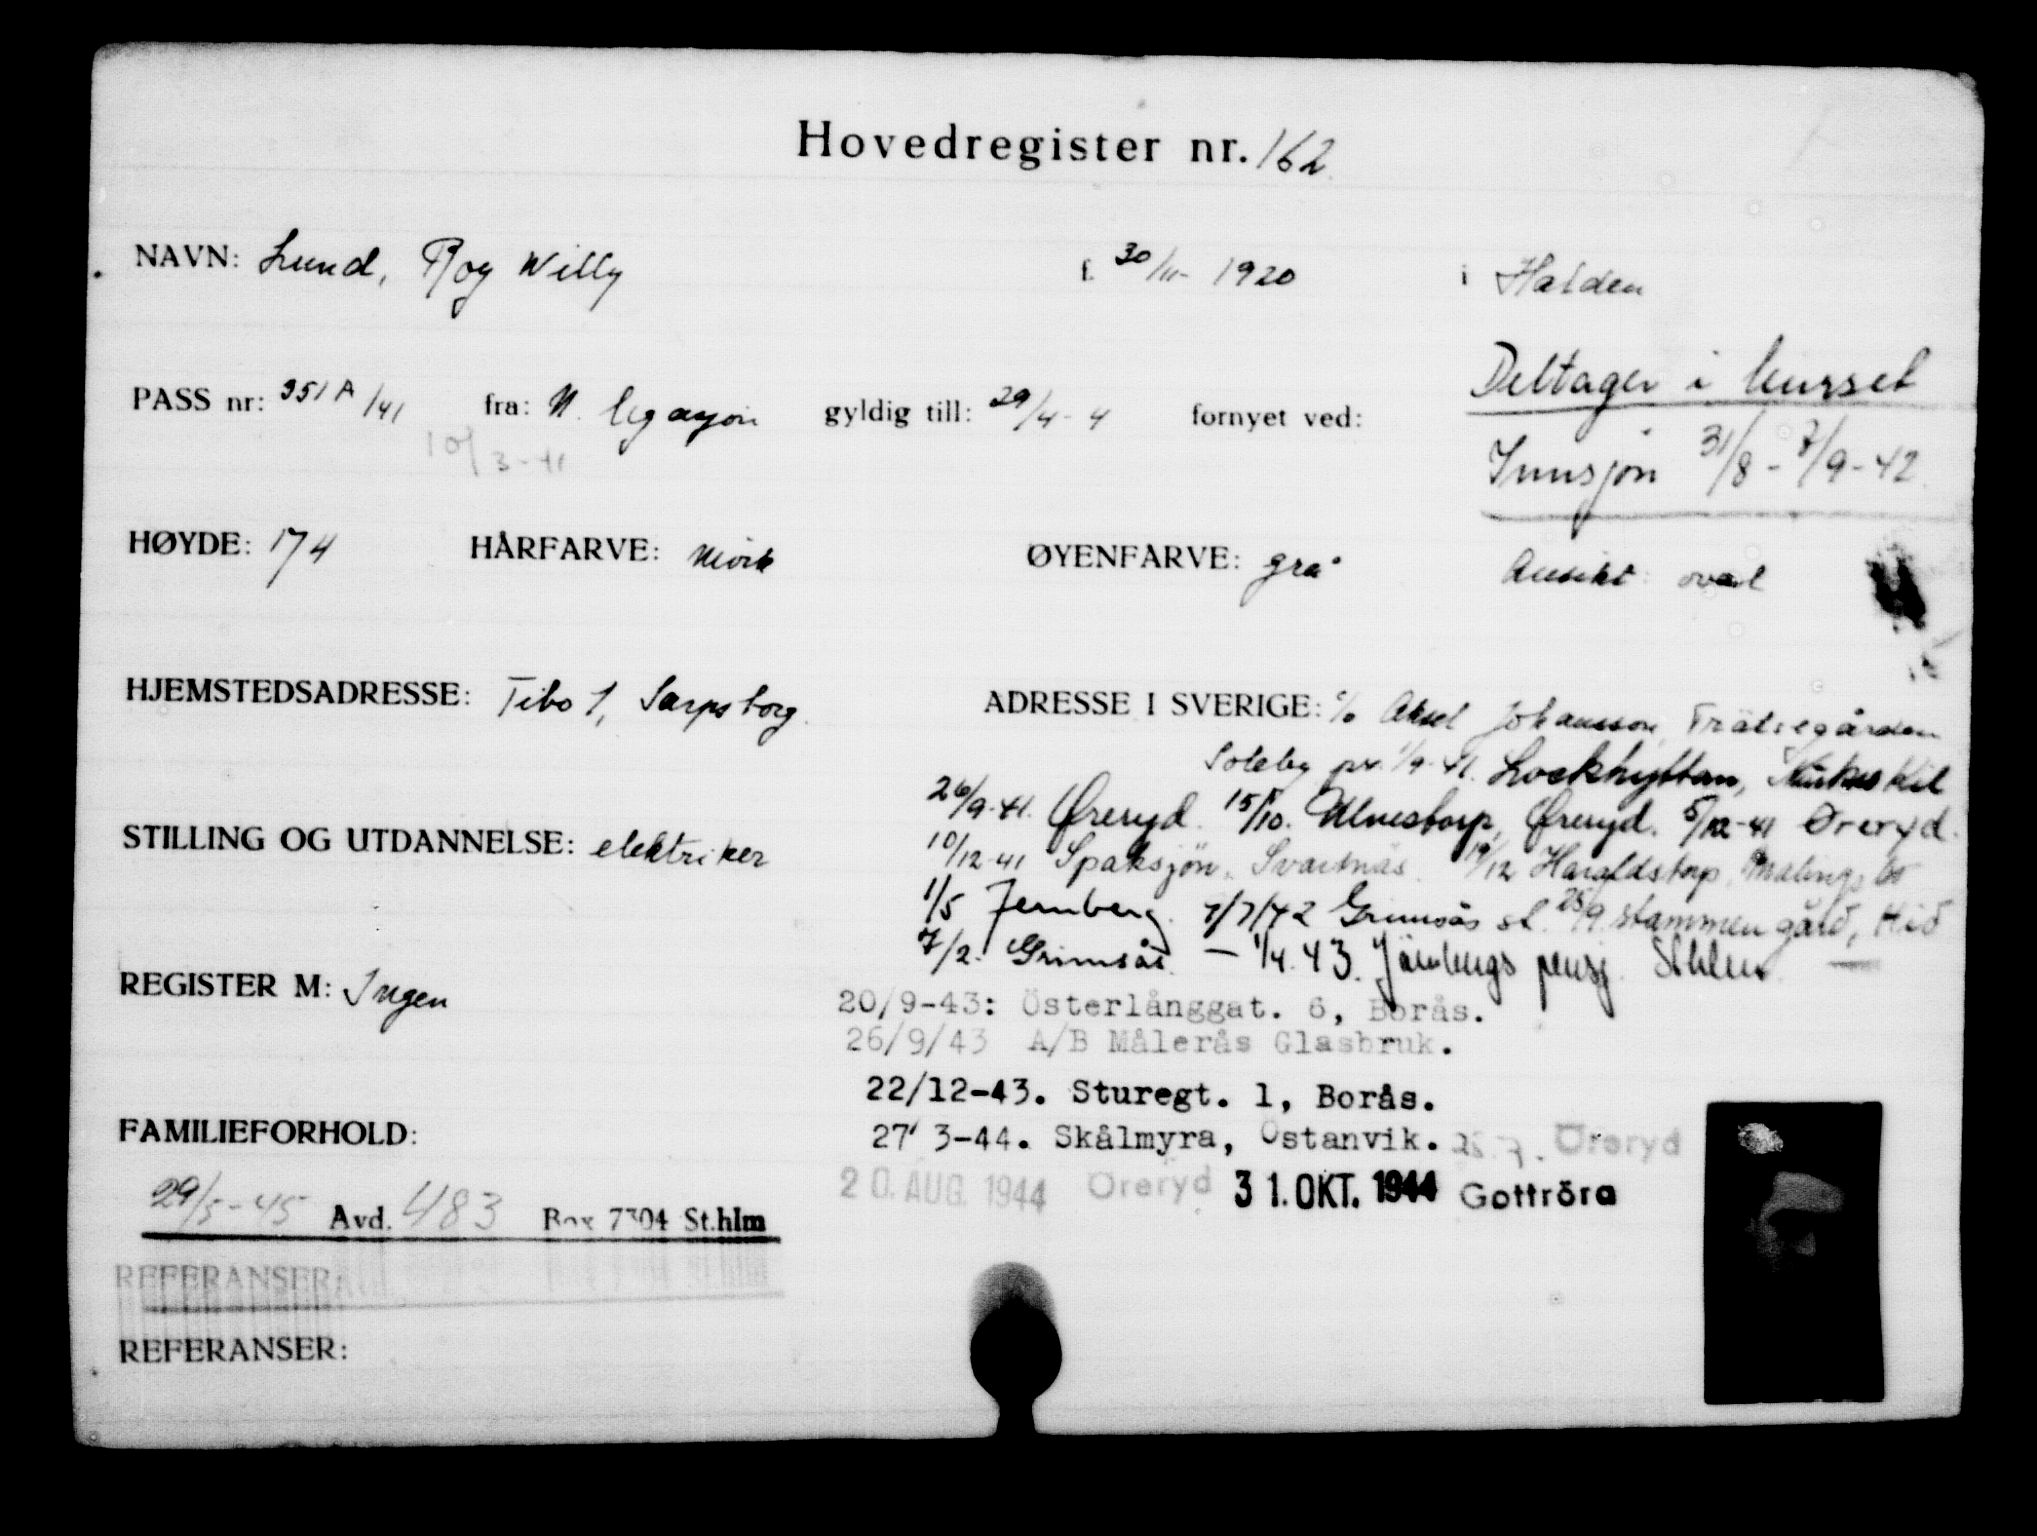 Hovedregister nr. 162
NAVN: Lund, Roy Willy f. 30/11- 1920 i Halden
PASS nr: 351 A/41 fra: N. legasjon gyldig till: 29/4- 4 fornyet ved:
10/3-41
Deltager i kurset
Innsjön 31/8 - 7/9-42
HØYDE: 174 HÅRFARVE: mörk ØYENFARVE: grå Ansikt: oval
HJEMSTEDSADRESSE: Tibo 1, Sarpsborg ADRESSE I SVERIGE: c/o Aksel Johansson,
Soleby pr. 1/9-41. Lockhyttan, Kil
26/9-41. Øreryd. 15/10. Ulvestorp, Øreryd. 5/12-41 Øreryd.
STILLING OG UTDANNELSE: elektriker
10/12-41 Spaksjön, Svartnäs. 19/12 Haraldstorp, Malingsbo
1/5 Jernberg. 7/7/42 Grimsås st. 25/9 Stammen gård,
7/2. Grimsås. — 1/4.43. pensj. Sthlm
REGISTER M: Ingen
20/9-43: Österlånggat. 6, Borås.
26/9/43 A/B Målerås Glasbruk.
22/12-43. Sturegt. 1, Borås.
FAMILIEFORHOLD:
27' 3-44. Skålmyra, Östanvik. 25.7. Öreryd
20. AUG. 1944 Öreryd 31. OKT. 1944 Gottröra
29/5-45 Avd. 483 Box 7304 St.hlm
REFERANSER:
REFERANSER: